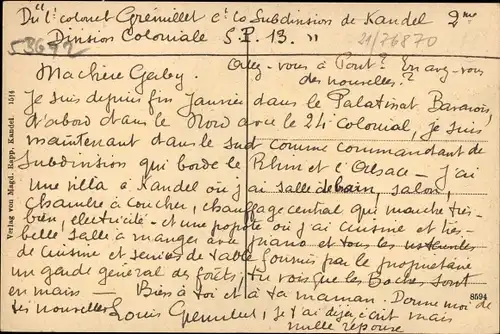 Du Lt colonel Grémillet Ct la Subdivision de Kandel 2me
Division Coloniale S.P. 13. "
53692
21/76870
Ma chère Gerby.
Allez-vous à Pont? En avez-vous
des nouvelles?
Je suis depuis fin Janvier dans le Palatinat Bavarois,
d'abord dans le Nord avec le 24e Colonial, je suis
maintenant dans le Sud comme commandant de
Subdivision qui borde le Rhin et l'Alsace - j'ai
une villa à Kandel où j'ai salle de bain, salon,
chambre à coucher, chauffage central qui marche très-
bien, électricité - et une popote où j'ai cuisine et très-
belle salle à manger avec piano et tous les ustensiles
de cuisine et services de table fournis par le propriétaire
un garde général des forêts, tu vois que les Boches sont
en mains - Bien à toi et à ta maman. Donne moi de
tes nouvelles
Louis Grémillet, je t'ai déjà écrit mais
nulle réponse
Verlag von Magd. Rapp, Kandel. 1514
8594